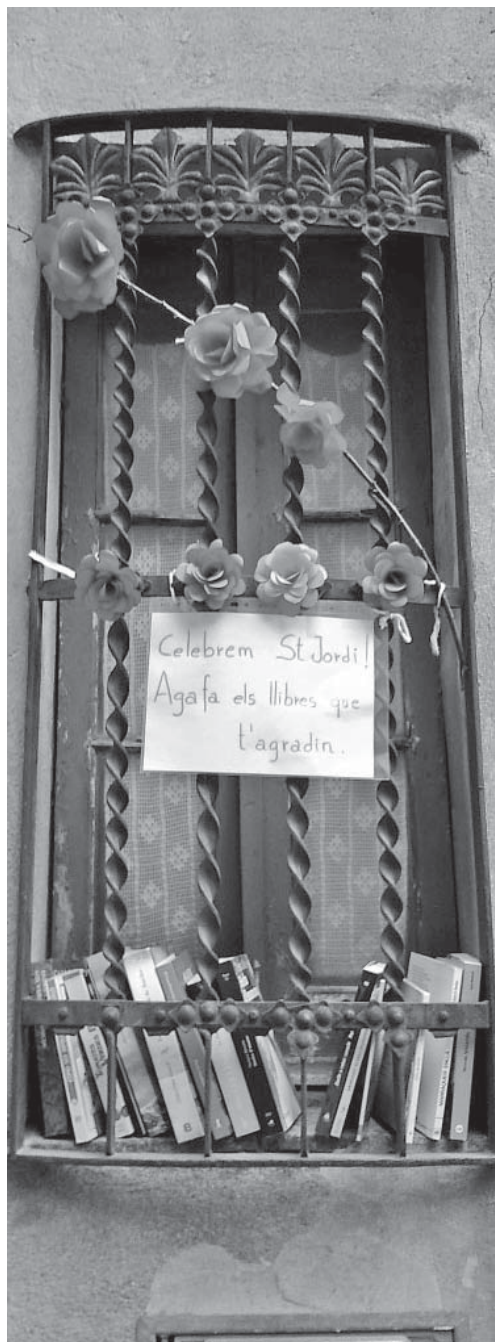 Celebrem St Jordi!
Agafa els llibres que
t'agradin.